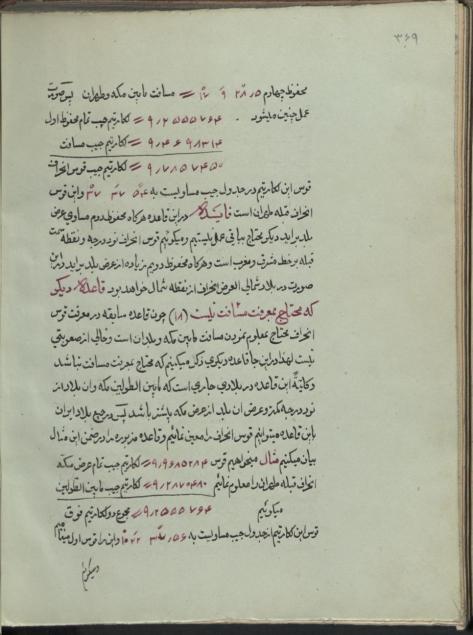 ۳۶۹
محفوظ چهارم ۲۸٫۵ = مسافت مابین مکه وطهران پس صورت
عمل چنین میشود ۰ ۹٫۲۵۵۵۷۶۴ = لکارتیم جیب تمام محفوظ اول
۹٫۴۶۹۸۳۱۴ = لکارتیم جیب مسافت
۹٫۷۸۵۷۴۵۰ = لکارتیم جیب قوس انحراف
قوس این لکارتیم در جدول جیب مساویست به وابن قوس
انحراف قبله طهران است فایده در این قاعده هرکاه محفوظ دوم مساوی عرض
بلد براید دیکر محتاج بباقی عمل نیستیم ومیکوئیم قوس انحراف نود درجه ونقطه سمت
قبله بر خط مشرق ومغرب است وهرکاه محفوظ دویم زیاده از عرض بلد براید دراین
صورت در بلاد شمالی العرض انحراف از نقطه شمال خواهد بود قاعده دیکر
که محتاج بمعرفت مسافت نیست (۱۸) چون قاعده سابقه در معرفت قوس
انحراف محتاج بمعلوم نمودن مسافت مابین مکه وبلدان است وخالی از صعوبتی
نیست لهذا در این جا قاعده دیکری ذکر میکنیم که محتاج بمعرفت مسافت نباشد
وکلیة این قاعده در بلادی جاری است که مابین الطولین مکه وان بلاد از
نود درجه کمتر وعرض ان بلاد از عرض مکه بیشتر باشد پس در جمیع بلاد ایران
باین قاعده میتوانیم قوس انحراف را معین نمائیم وقاعده مزبوره را در ضمن این مثال
بیان میکنیم مثال میخواهیم قوس ۹٫۹۶۸۵۲۸۴ = لکارتیم جیب تمام عرض مکه
انحراف قبله طهران را معلوم نمائیم ۹٫۲۸۷۰۴۸۰ = لکارتیم جیب مابین الطولین
میکوئیم ۹٫۲۵۵۵۷۶۴ = مجموع دو لکارتیم فوق
قوس این لکارتیم از جدول جیب مساویست به واین را قوس اول مینامیم